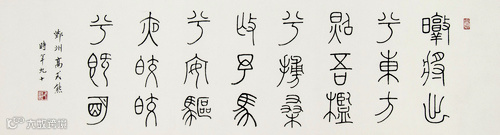 暾將出
兮東方
照吾檻
兮扶桑
撫予馬
兮安驅
夜皎皎
兮既明
鄞州高式熊
時年九十